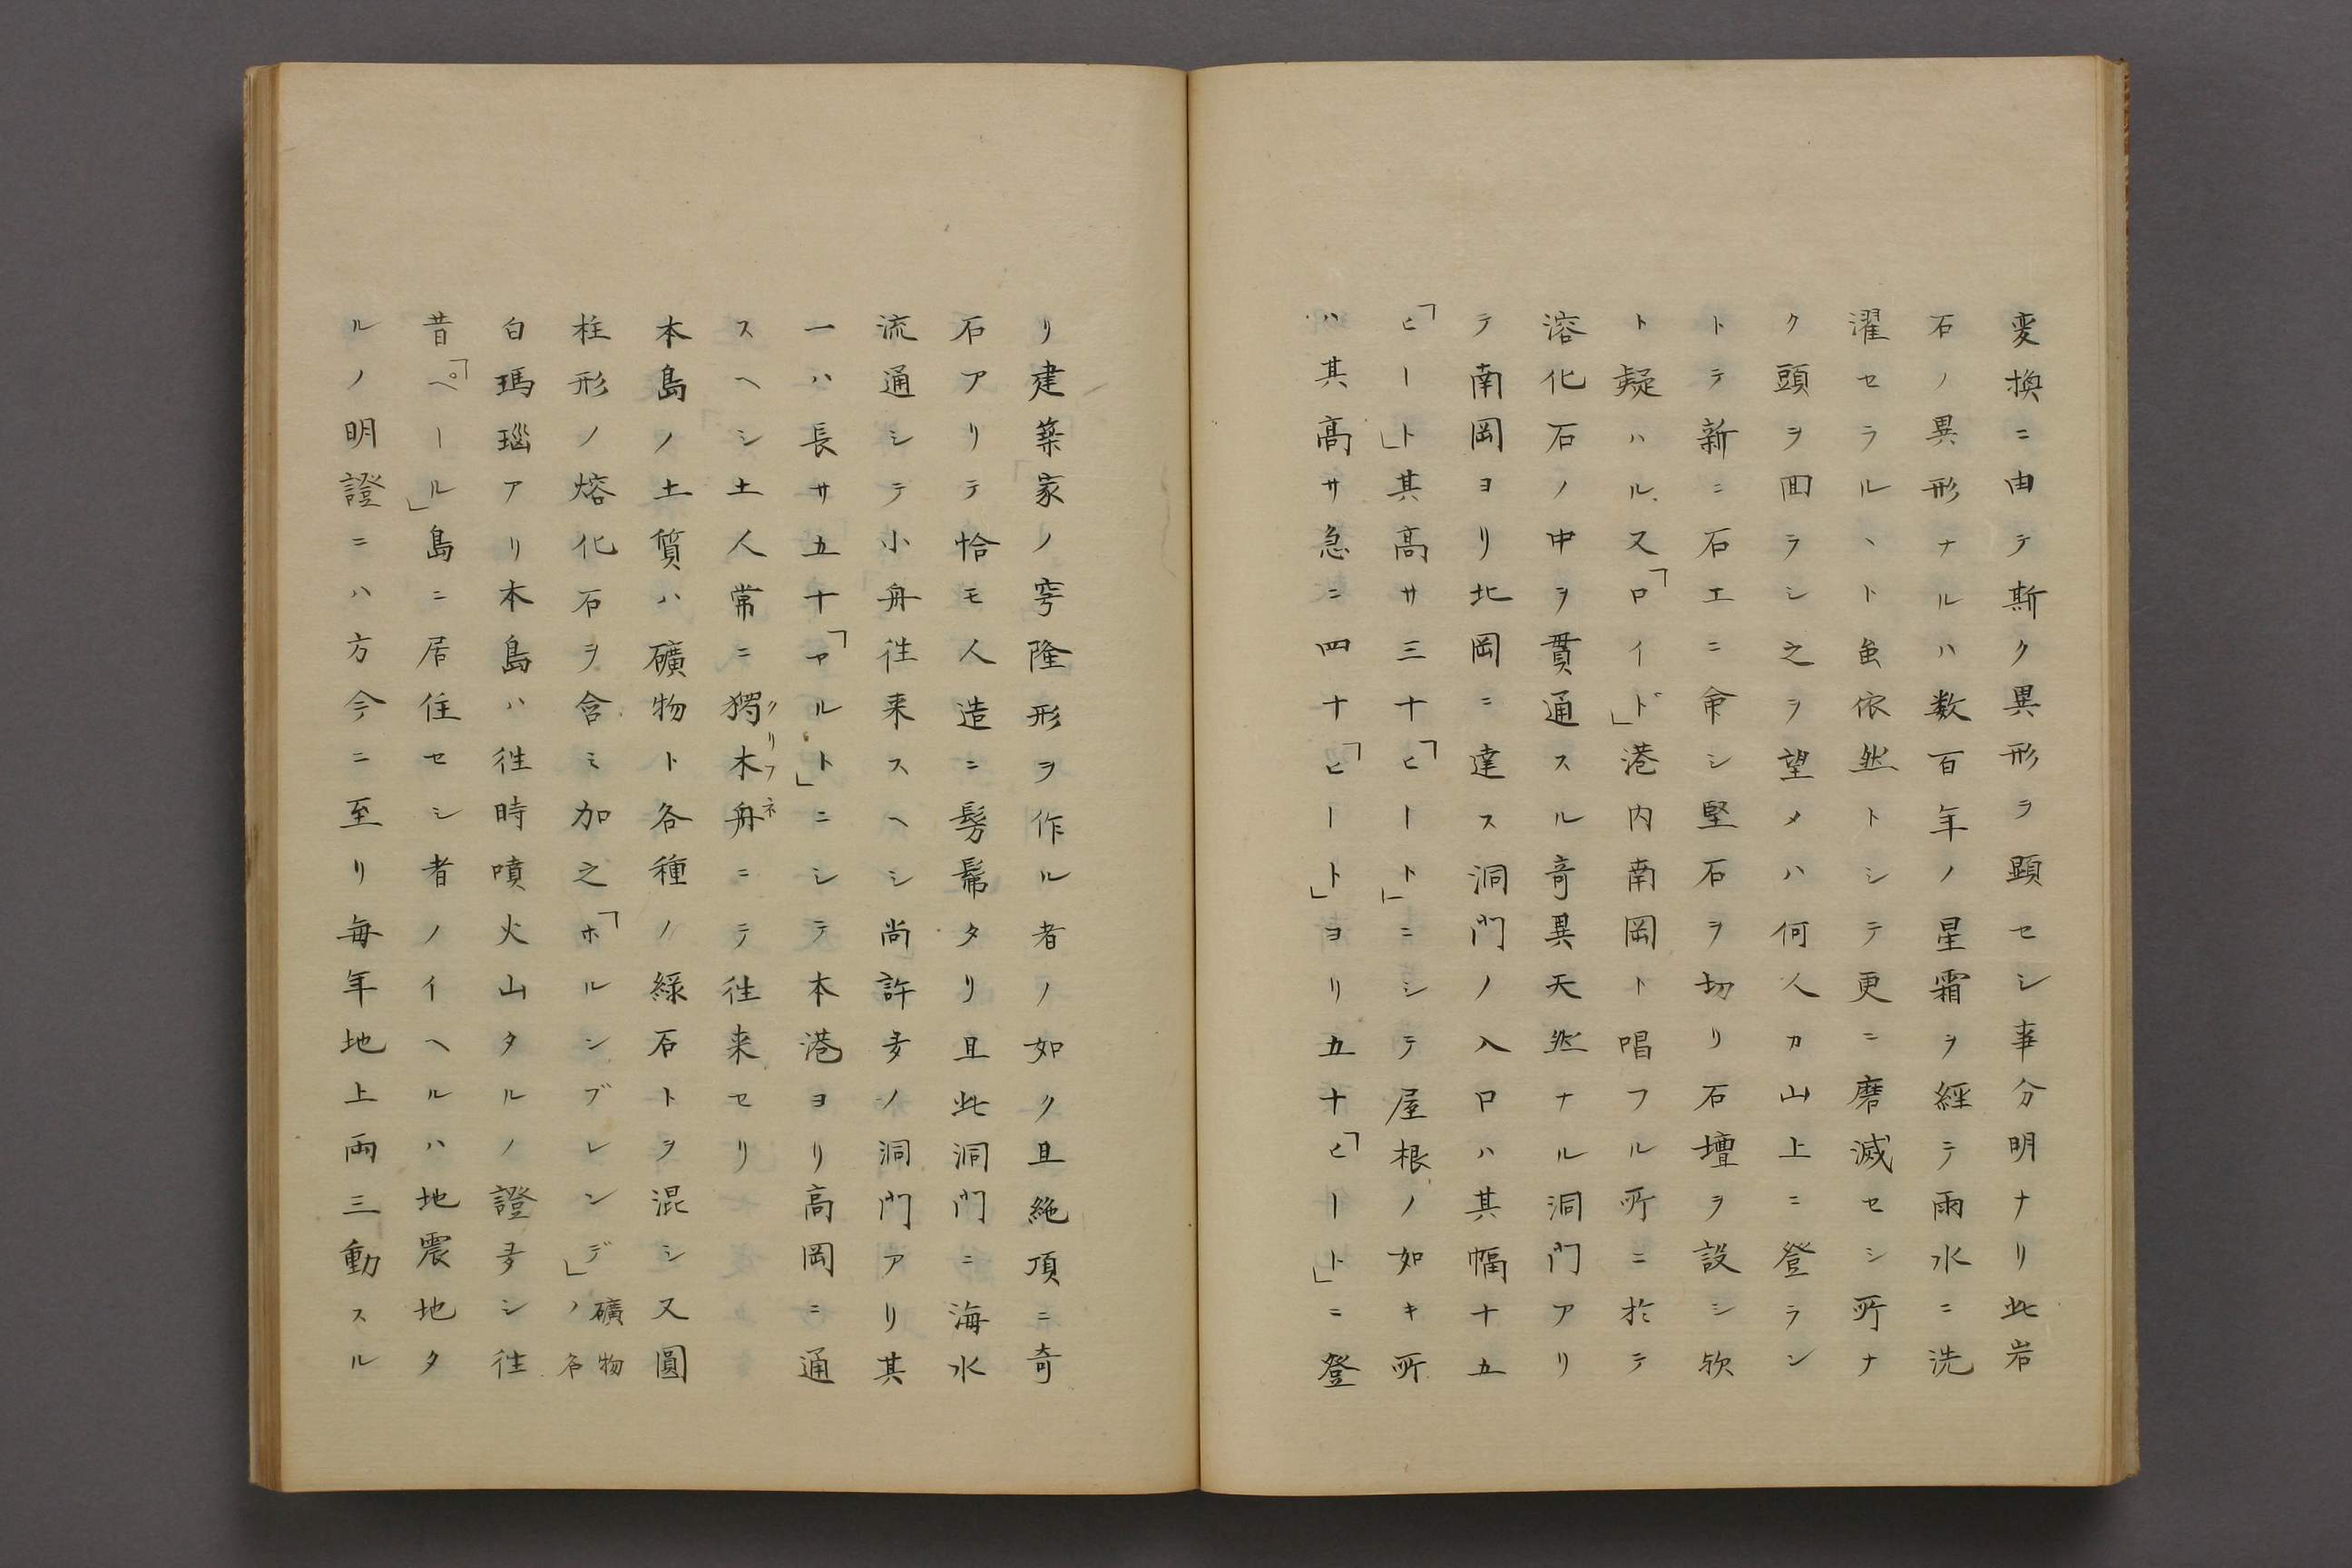 変換ニ由テ斯ク異形ヲ顕セシ事分明ナリ此岩
石ノ異形ナルハ数百年ノ星霜ヲ經テ雨水ニ洗
濯セラルヽト虽依然トシテ更ニ磨滅セシ所ナ
ク頭ヲ囬ラシ之ヲ望メハ何人カ山上ニ登ラン
トテ新ニ石工ニ命シ堅石ヲ切リ石壇ヲ設シ欤
ト疑ハル又「ロイド」港内南岡ト唱フル所ニ於テ
溶化石ノ中ヲ貫通スル奇異天然ナル洞門アリ
テ南岡ヨリ北岡ニ達ス洞門ノ入口ハ其幅十五
「ヒート」其高サ三十「ヒート」ニシテ屋根ノ如キ所
ハ其高サ急ニ四十「ヒート」ヨリ五十「ヒート」ニ登
リ建築家ノ穹隆形ヲ作ル者ノ如ク且絶頂ニ奇
石アリテ恰モ人造ニ髣髴タリ且此洞門ニ海水
流通シテ小舟徃来スヘシ尚許多ノ洞門アリ其
一ハ長サ五十「ヤルト」ニシテ本港ヨリ高岡ニ通
スヘシ土人常ニ獨木舟クリフネニテ徃来セリ
本島ノ土質ハ礦物ト各種ノ緑石トヲ混シ又圓
柱形ノ熔化石ヲ含ミ加之「ホルンブレンデ」礦物ノ名
白瑪瑙アリ本島ハ徃時噴火山タルノ證多シ徃
昔「ペール」島ニ居住セシ者ノイヘルハ地震地タ
ルノ明證ニハ方今ニ至リ毎年地上両三動スル